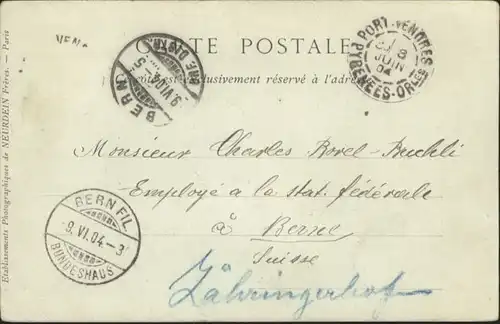 CARTE POSTALE
Ce côté est exclusivement réservé à l'adresse
PORT-VENDRES
8
JUIN
04
PYRÉNÉES-ORles
BERN
9.VI.04
Monsieur Charles Borel-Buchli
Employé à la stat. fédérale
à Berne
Suisse
Zähringerhof
BERN FIL.
-9.VI.04.-3
BUNDESHAUS
Etablissements Photographiques de NEURDEIN Frères. — Paris